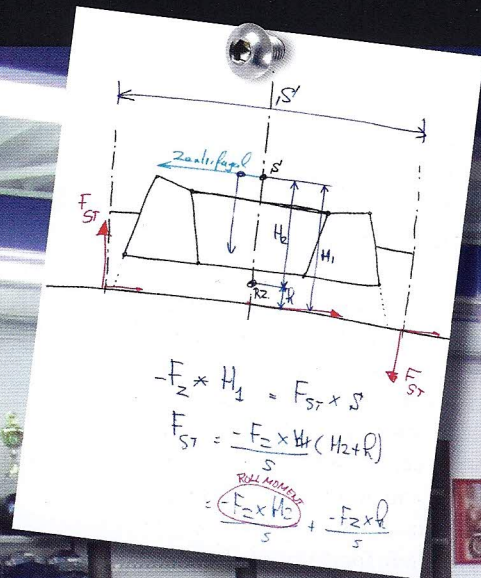 S
Zentrifugal
S
F_ST
H_2
H_1
RZ
h
F_ST
-F_Z × H_1 = F_ST × S
F_ST = -F_Z × H1 (H_2+h) / S
ROLL MOMENT
= -F_Z × H_2 / S + -F_Z × h / S